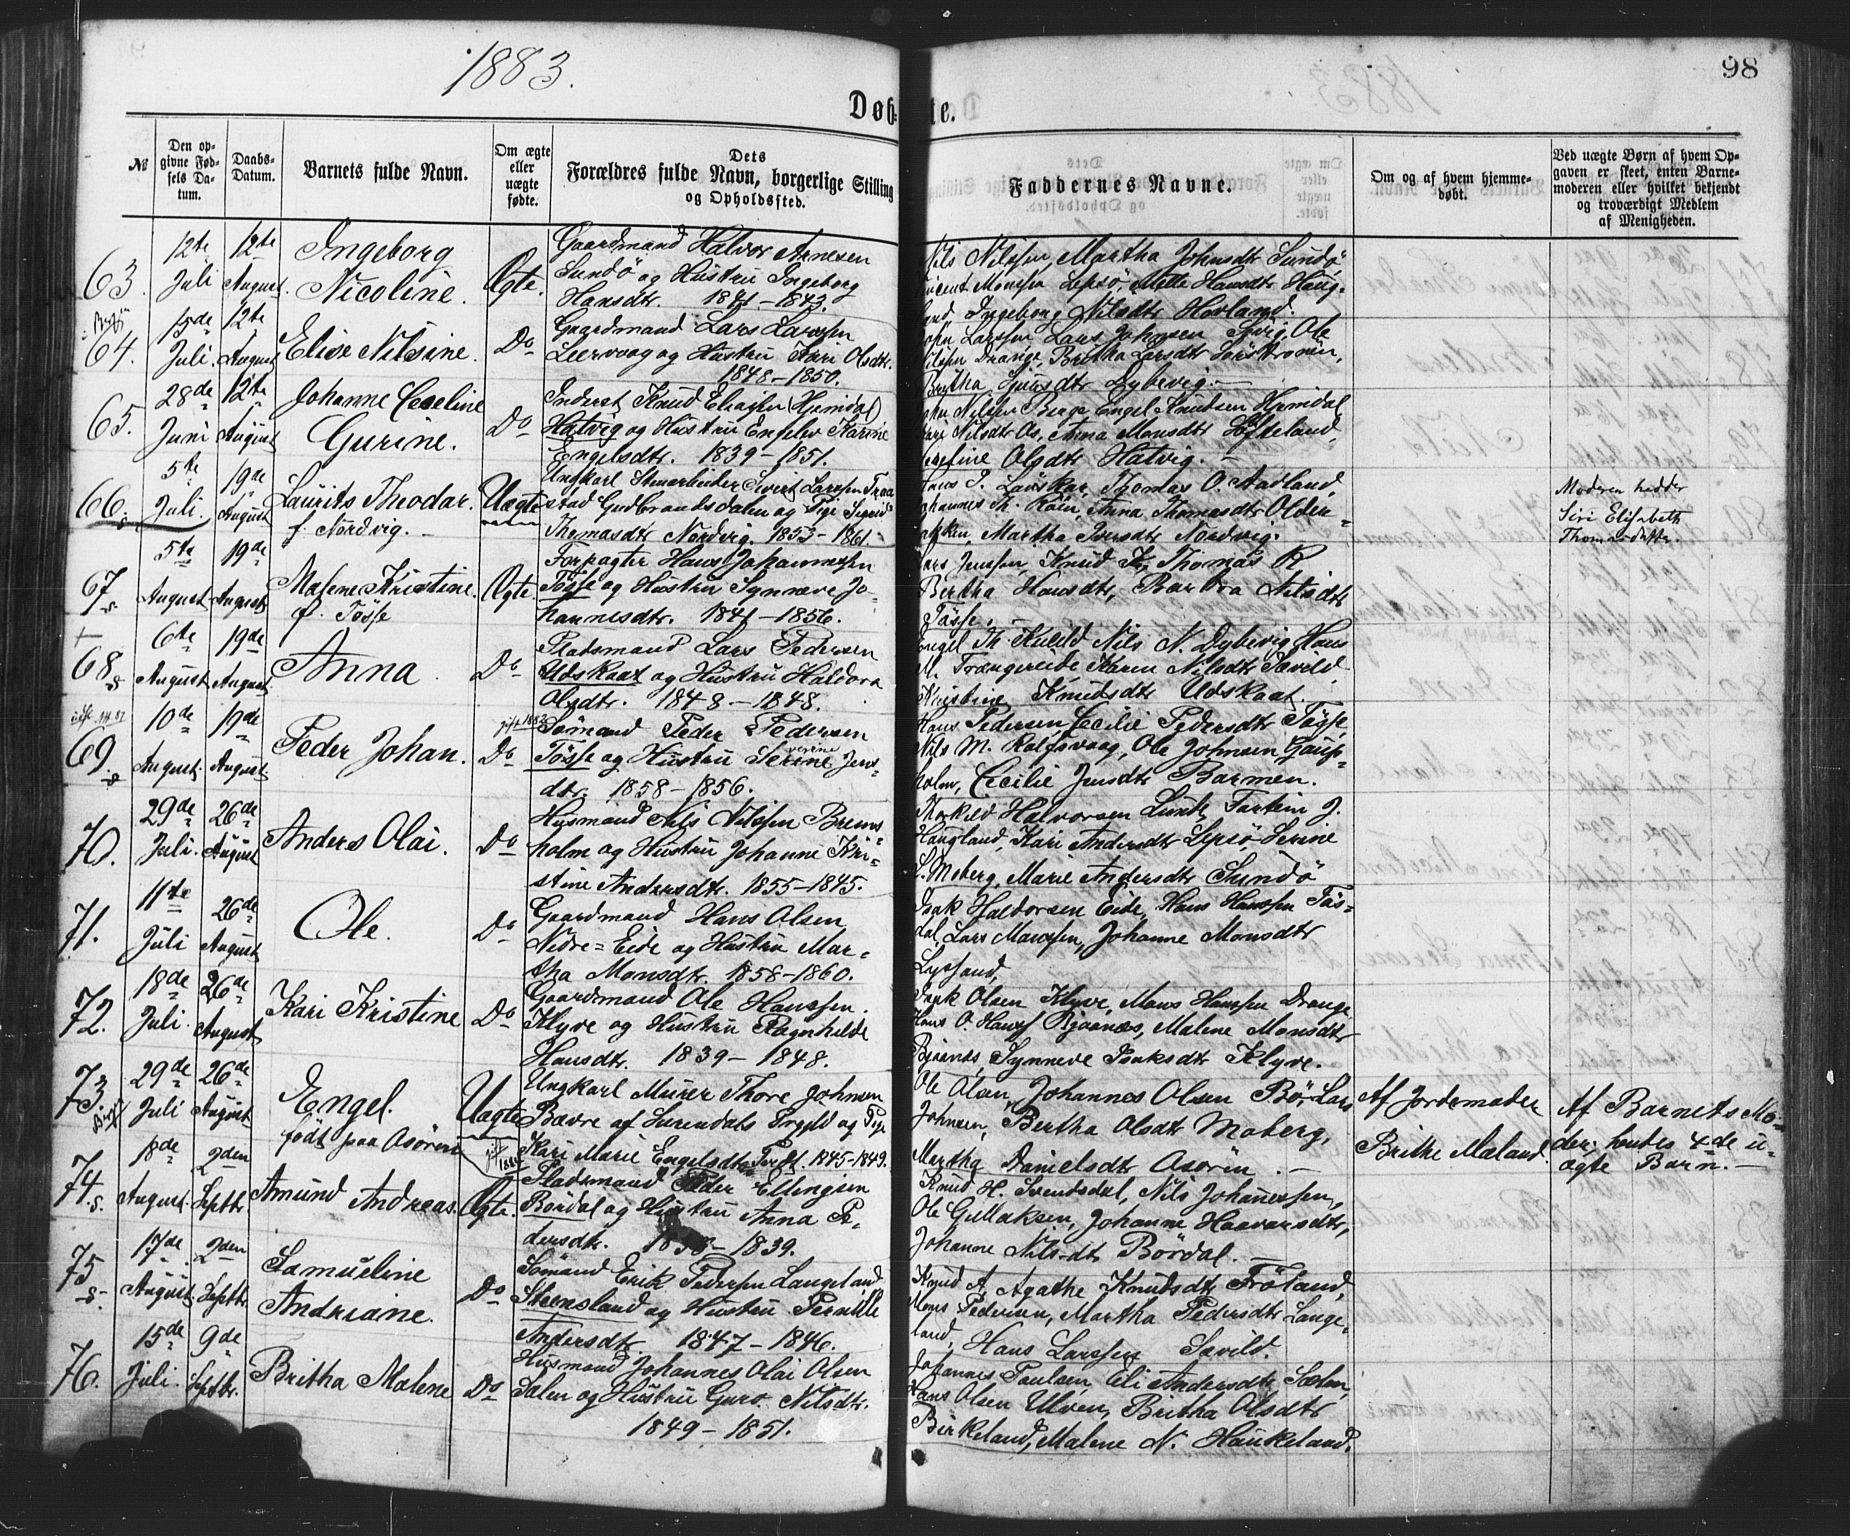 1883.
98
Døbte.
№
Den opgivne Fødsels Datum.
Daabs-Datum.
Barnets fulde Navn.
Om ægte eller uægte fødte.
Dets Forældres fulde Navn, borgerlige Stilling og Opholdssted.
Faddernes Navne.
Om og af hvem hjemmedøbt.
Ved uægte Børn af hvem Opgaven er skeet, enten Barnemoderen eller hvilket bekjendt og troværdigt Medlem af Menigheden.
63. 12te Juli 12te August. Ingeborg Nicoline. Ægte.
Gaardmand Halvor Arnesen
Sundö og Hustru Ingeborg
Hansdtr. 1841 – 1843.
Nils Nilssen, Martha Johnsdtr Sundö
Monssen Lepsö, Mette Hansdtr Haug-
land Ingeborg Nilsdtr Hovland.
64. 15de Juli. 12te August Elise Nilsine. Do
Gaardmand Lars Larssen
Leervaag og Hustru Kari Olsdtr.
1848 – 1850.
Larssen Lars Johnsen Spvig, Ole
Nilsen Drange, Britha Larsdtr
Britha Sjursdtr Dybevig. —
65. 28de Juni 12te August Johanne Ceceline Gurine. Do
Inderst Knud Eliassen (Hjemdal)
Hatvig og Hustru Engelev Karine
Engelsdtr. 1839 – 1851.
Nilsen Berge, Engel Knutsen Hjemdal
Kari Nilsdtr Os, Anna Monsdtr Söfteland,
Josefine Olsdtr Hatvig.
66. s 5te Juli. 19de August Laurits Theodor. f. Nordvig. — Uægte
Ungkarl Stenarbeider Sivert Larssen Fraa
stad Gudbrandsdalen og Pige Sigrid
Thomasdtr Nordvig. 1853 – 1861.
Lönskar, Thomas O. Aadland,
Johannes Th. Röin, Anna Thomasdtr Older-
bakken, Martha Iversdtr Nordvig.
Moderen hedder
Siri Elisabeth
Thomasdatter
67. s 5te August 19de August Malene Kristine. f. Tösse Ægte
Forpagter Hans Johannessen
Tösse og Hustru Synneve Jo-
hannesdtr. 1841 – 1856.
Lars Jenssen, Knud K, Thomas R
Bertha Hansdtr, Barbra Nilsdtr
Tösse.
+
68. s 6te August 19de August Anna. Do
Pladsmand Lars Pedersen
Udskaat og Hustru Haldora
Olsdtr. 1848. – 1848.
Engel Th. Kuld, Nils N. Dybevig, Hans
M. Trængereide Karen Nilsdtr Sævild
Kristine Knudsdtr Udskaat
69. s 10de August. 19de August Peder Johan. Do
Sömand Peder Pedersen
Tösse og Hustru Serine Jens-
verine
dtr. 1858 – 1856.
Hans Pedersen, Cecilie Pedersdtr Tösse,
Nils M. Rolfsvaag, Ole Johnsen Gaus-
holm, Cecilie Jensdtr Barmen.
70. 29de Juli. 26de August Anders Olai. Do
Husmand Nils Nilssen Brems-
holm og Hustru Johanne Kri-
stine Andersdtr. 1855 – 1845.
Torkild Halvorsen Lunde, Torbin J.
Haugland, Kari Andersdtr Lepsö Serine
S. Moberg, Marie Andersdtr Sundö
71. 11te Juli 26de August Ole. Do
Gaardmand Hans Olsen
Nedre = Eide og Hustru Mar-
tha Monsdtr. 1858 – 1860.
Isak Haldorsen Eide, Hans Hanssen Tös-
dal, Lars Monssen, Johanne Monsdtr
Lyssand.
72. 18de Juli. 26de August Kari Kristine Do
Gaardmand Ole Hanssen.
Klyve og Hustru Ragnhilde
Hansdtr. 1839 – 1848.
Isak Olsen Klyve, Mons Hanssen Drange
Hans O. Hanss Bjoanæs, Malene Monsdtr
Bjoanæs, Synneve Isaksdtr Klyve.
73. 29de Juli 26de August Engel. födt paa Osören Uægte
Ungkarl Murer Thore Johnsen
Bævre af Surendals Prgjld og Pige
Kari Marie Engelsdtr Tvedt. 1845 – 1849.
Ole Olsen, Johannes Olsen Bö, Lars
Johnsen, Bertha Olsdtr Moberg,
Martha Danielsdtr Osören. —
Af Jordemoder
Brithe Maland.
Af Barnets Mo-
der; hendes 4de u-
ægte Barn. —
74. s. 18de August. 2den Septbr. Amund Andreas. Ægte.
Pladsmand Peder Ellingsen
Bördal og Hustru Anna Pe-
dersdtr. 1838 – 1839.
Knud H. Svendsdal, Nils Johannessen,
Ole Gullaksen, Johanne Haavarsdtr,
Johanne Nilsdtr Bördal. —
75. s. 17de August 2den Septbr. Samueline Andriane. Do
Sömand Erik Pedersen Langeland
Steensland og Hustru Pernille
Andersdtr. 1847 – 1846.
Knud A, Agathe Knutsdtr Fröland,
Mons Pedersen, Martha Pedersdtr Lange-
land, Hans Larssen Sævild.
76. 15de Juli. 9de Septbr. Britha Malene Do
Husmand Johannes Olai Olsen
Salen og Hustru Guro Nilsdtr.
1849 – 1851.
Johannes Paulsen, Eli Andersdtr Salen,
Hans Olsen Ulven, Britha Olsdtr
Birkeland, Malene N. Haukeland.